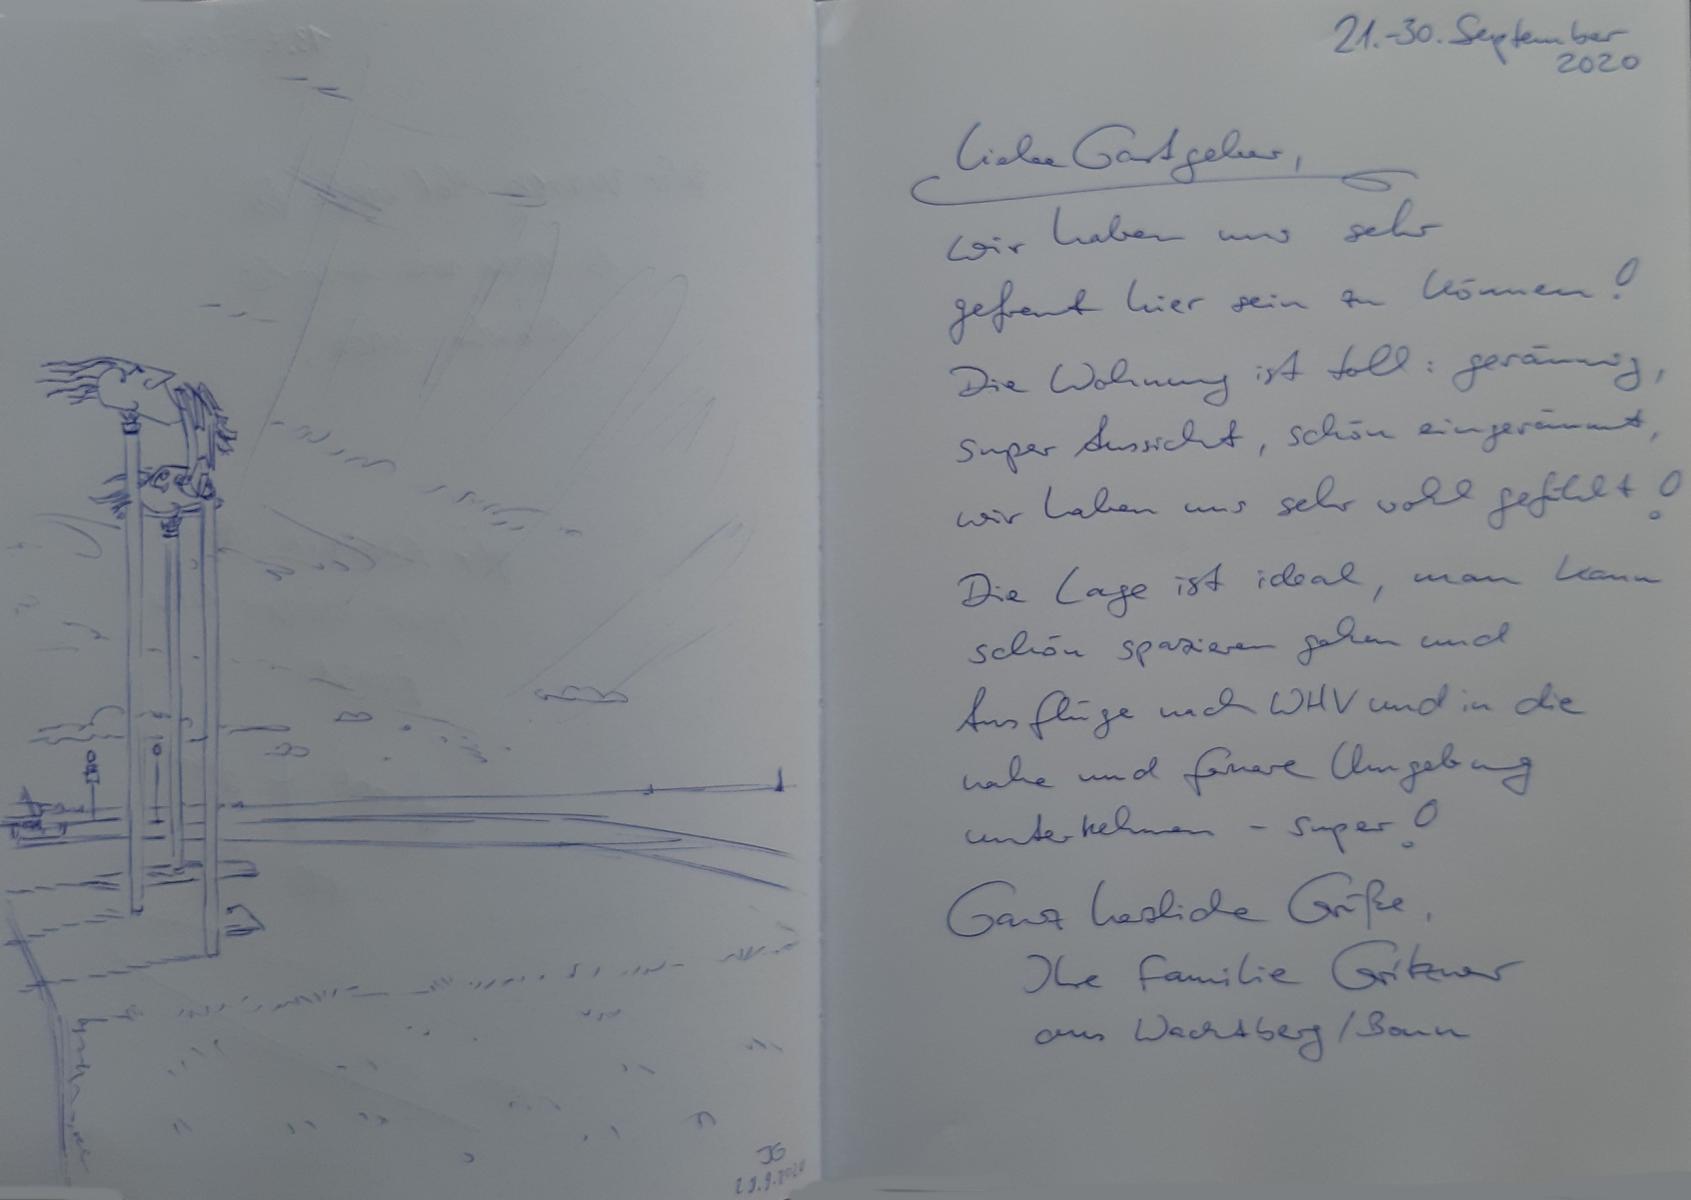 JG
29.9.2020
21.-30. September
2020
Liebe Gastgeber,
wir haben uns sehr
gefreut hier sein zu können!
Die Wohnung ist toll: geräumig,
super Aussicht, schön eingeräumt,
wir haben uns sehr wohl gefühlt!
Die Lage ist ideal, man kann
schön spazieren gehen und
Ausflüge nach WHV und in die
nahe und fernere Umgebung
unternehmen - super!
Ganz herzliche Grüße,
Ihre Familie Gritzner
aus Wachtberg/Bonn